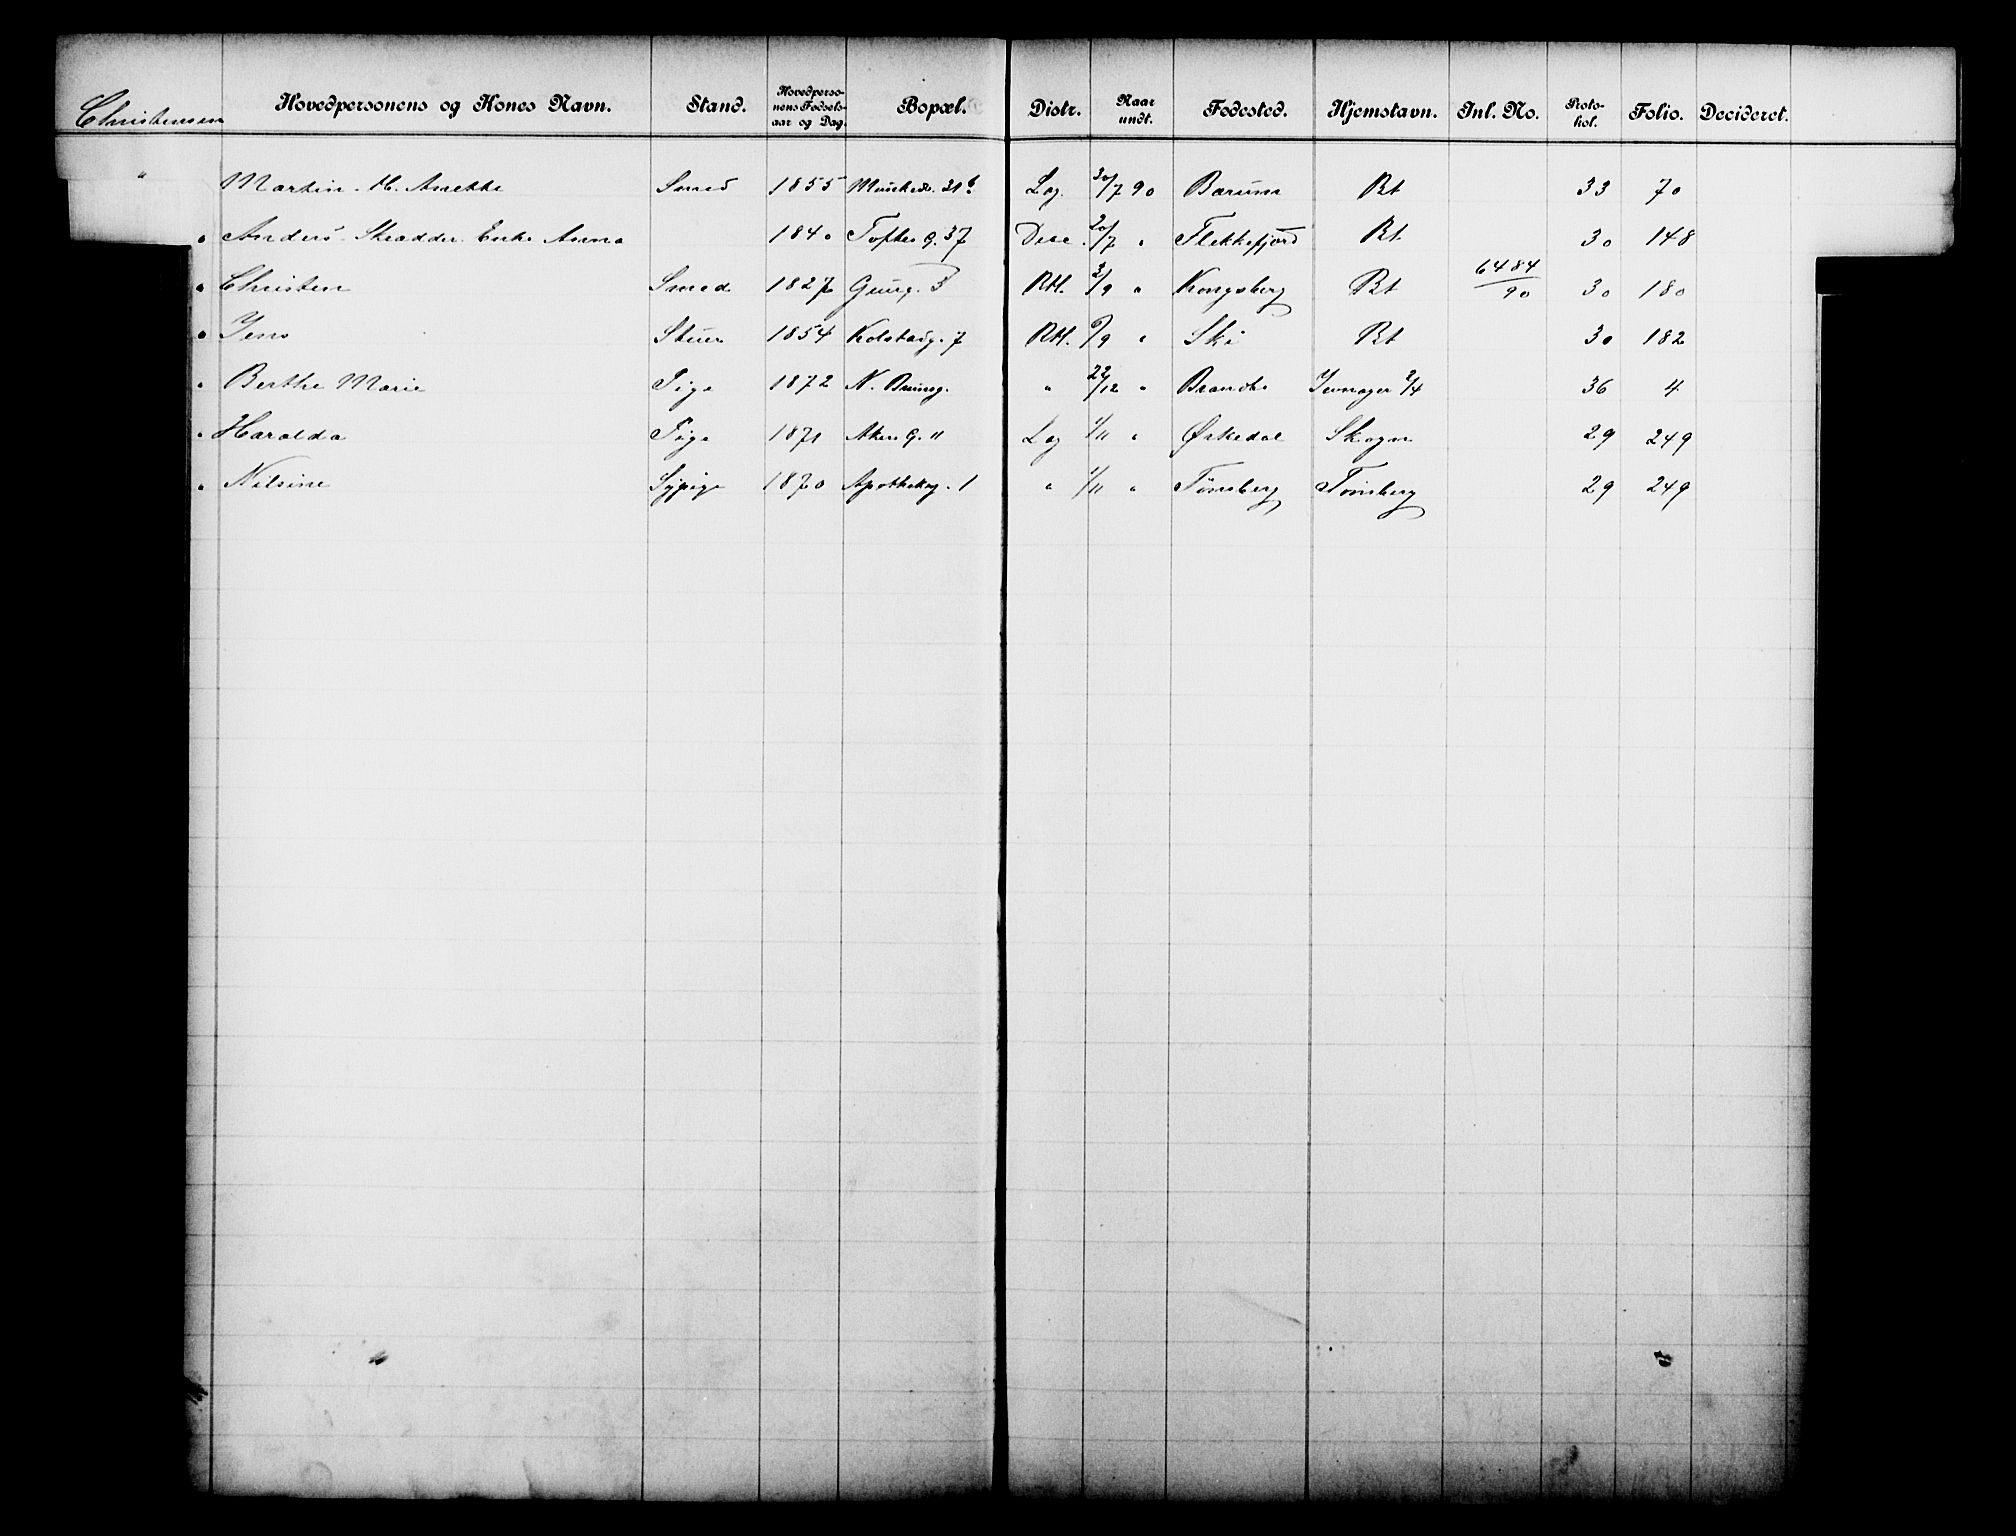 Christensen Hovedpersonens og Kones Navn. Stand. Hovedpersonens Fødselsaar og Dag. Bopæl. Distr. Naar undt. Fødested. Hjemstavn. Inl. No. Protokol. Folio. Decideret.
" Martin. H. Anette Smed 1855 31 b Lag. 30/7 90 Bærum Bt 33 70
" Anders Skrædder Enke Anna 1840 Toftes G. 37 Disc. 20/7 " Flekkefjord Bt 30 148
" Christen Smed 1827 3 Rtl. 3/9 " Kongsberg Bt 6484/90 30 180
" Jens Stuer 1854 Kolstadg. 7 Rtl. 6/9 " Ski Bt 30 182
" Berthe Marie Pige 1872 N. " 22/12 " Brandbo Jevnager 2/4 36 4
" Haralda Pige 1871 Akers G. 11 Lag 1/11 " Ørkedal Skogn 29 249
" Nilsine Sypige 1870 Apothekerg. 1 " 1/11 " Tønsberg Tønsberg 29 249